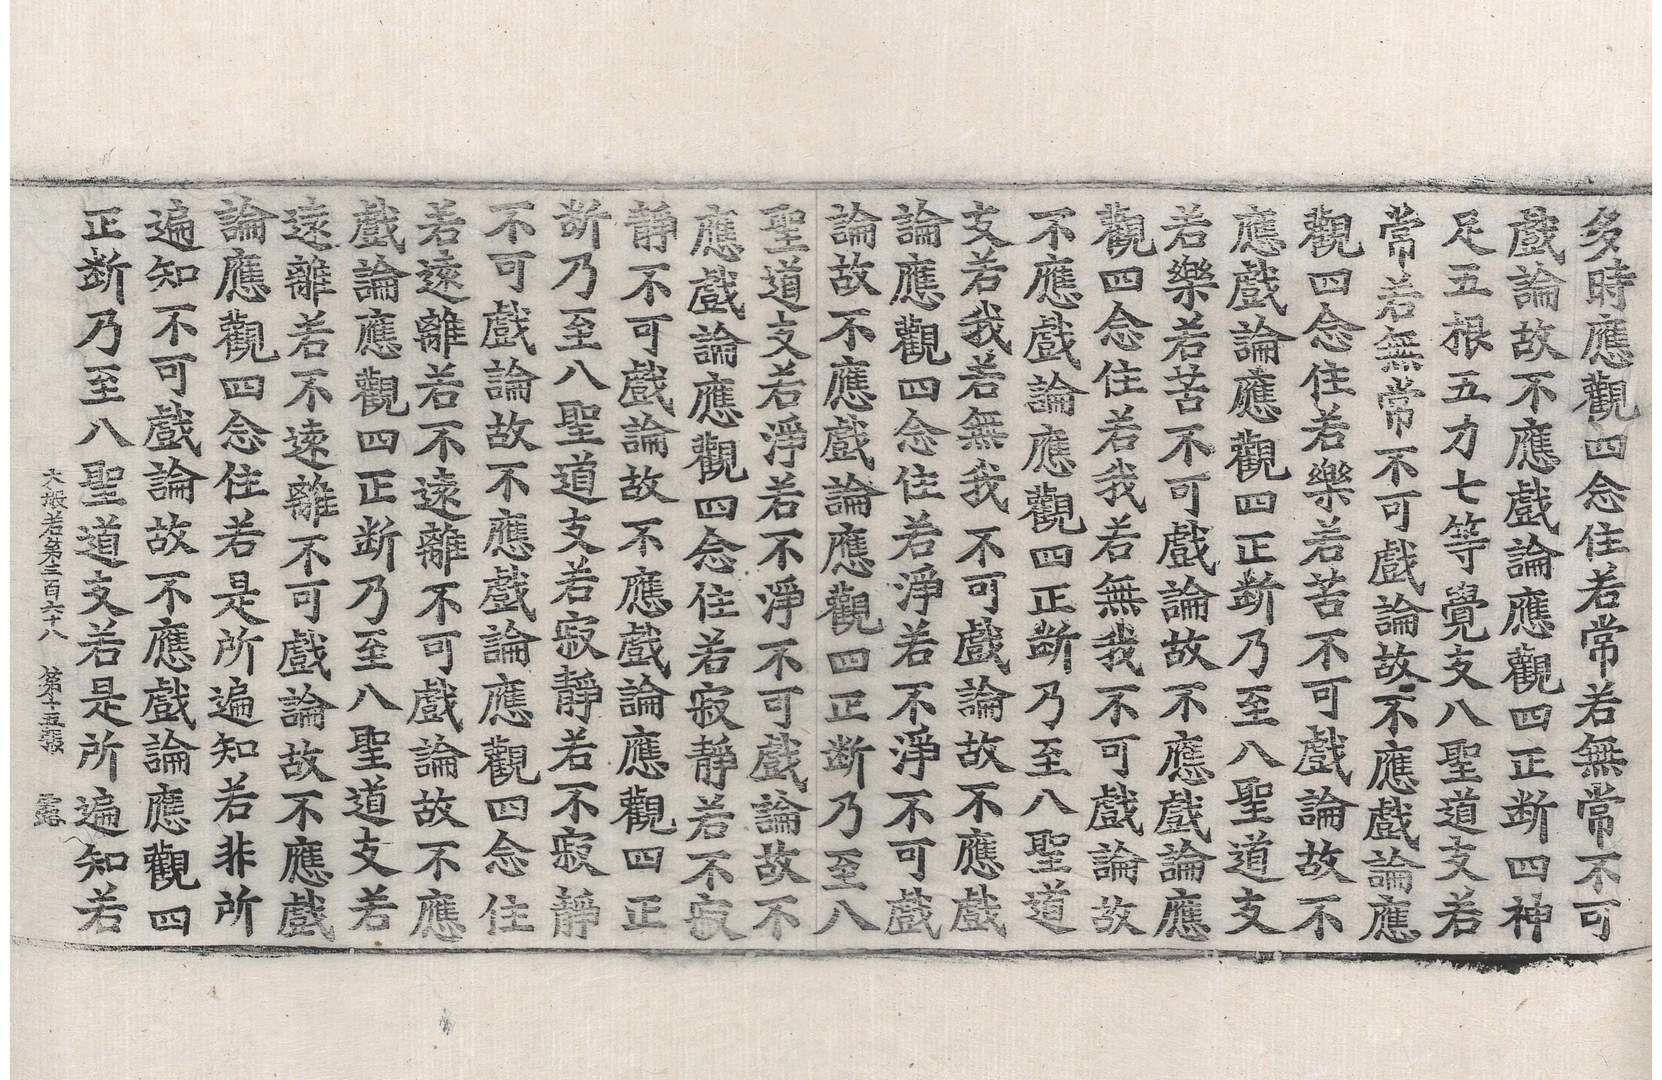 多時應觀四念住若常若無常不可
戲論故不應戲論應觀四正断四神
足五根五力七等覺支八聖道支若
常若無常不可戲論故不應戲論應
觀四念住若樂若苦不可戲論故不
應戲論應觀四正断乃至八聖道支
若樂若苦不可戲論故不應戲論應
觀四念住若我若無我不可戲論故
不應戲論應觀四正断乃至八聖道
支若我若無我不可戲論故不應戲
論應觀四念住若淨若不淨不可戲
論故不應戲論應觀四正断乃至八
聖道支若淨若不淨不可戲論故不
應戲論應觀四念住若寂靜若不寂
靜不可戲論故不應戲論應觀四正
断乃至八聖道支若寂靜若不寂靜
不可戲論故不應戲論應觀四念住
若遠離若不遠離不可戲論故不應
戲論應觀四正断乃至八聖道支若
遠離若不遠離不可戲論故不應戲
論應觀四念住若是所遍知若非所
遍知不可戲論故不應戲論應觀四
正断乃至八聖道支若是所遍知若
大般若第三百六十八 第十五張 露